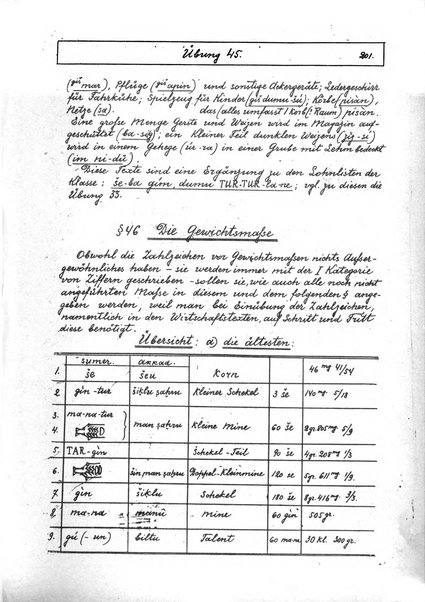 Übung 45. 201.
(giš mar), Pflüge (giš apin) und sonstige Ackergeräte; Ledergeschirr
für Fahrkühe; Spielzeug für Kinder (giš dumu-šú); Körbe (pisan),
Netze (sa). das (alles umfasst 1 Korb/: Raum) pisan.
Eine große Menge Gerste und Weizen wird im Magazin auf-
geschüttet (ba-sig); ein kleiner Teil dunklen Weizens (zig-si)
wird in einem Gehege (úr-ra) in einer Grube mit Lehm bedeckt
(im ni-dú).
Diese Texte sind eine Ergänzung zu den Lohnlisten der
Klasse: še-ba gim, dumu TUR-TUR-la-ne; vgl. zu diesen die
Übung 33.
§ 46 Die Gewichtsmaße
Obwohl die Zahlzeichen vor Gewichtsmaßen nichts Außer-
gewöhnliches haben - sie werden immer mit der I Kategorie
von Ziffern geschrieben - sollen sie, wie auch alle noch nicht
angeführten Maße in diesem und dem folgenden § ange-
geben werden, weil man bei Einübung der Zahlzeichen,
namentlich in den Wirtschaftstexten, auf Schritt und Tritt
diese benötigt.
Übersicht: a) die ältesten:
sumer. akkad.
1. še šeu Korn 46 mg 41/54
2 gin-tur šiklu ṣaḫru Kleiner Schekel 3 še 140 mg 5/18
3. ma-na-tur
4. man ṣaḫru Kleine Mine 60 še 2 gr. 805 mg 5/9
5. TAR-gin Schekel-Teil 90 še 4 gr. 208 mg 1/3
6. šin man ṣaḫru Doppel-Kleinmine 120 še 5 gr. 611 mg 1/9.
7. gin šiklu Schekel 180 še 8 gr. 416 mg 2/3.
8. ma-na manû Mine 60 gin 505 gr.
9. gú (-un) biltu Talent 60 ma-na 30 kl. 300 gr.